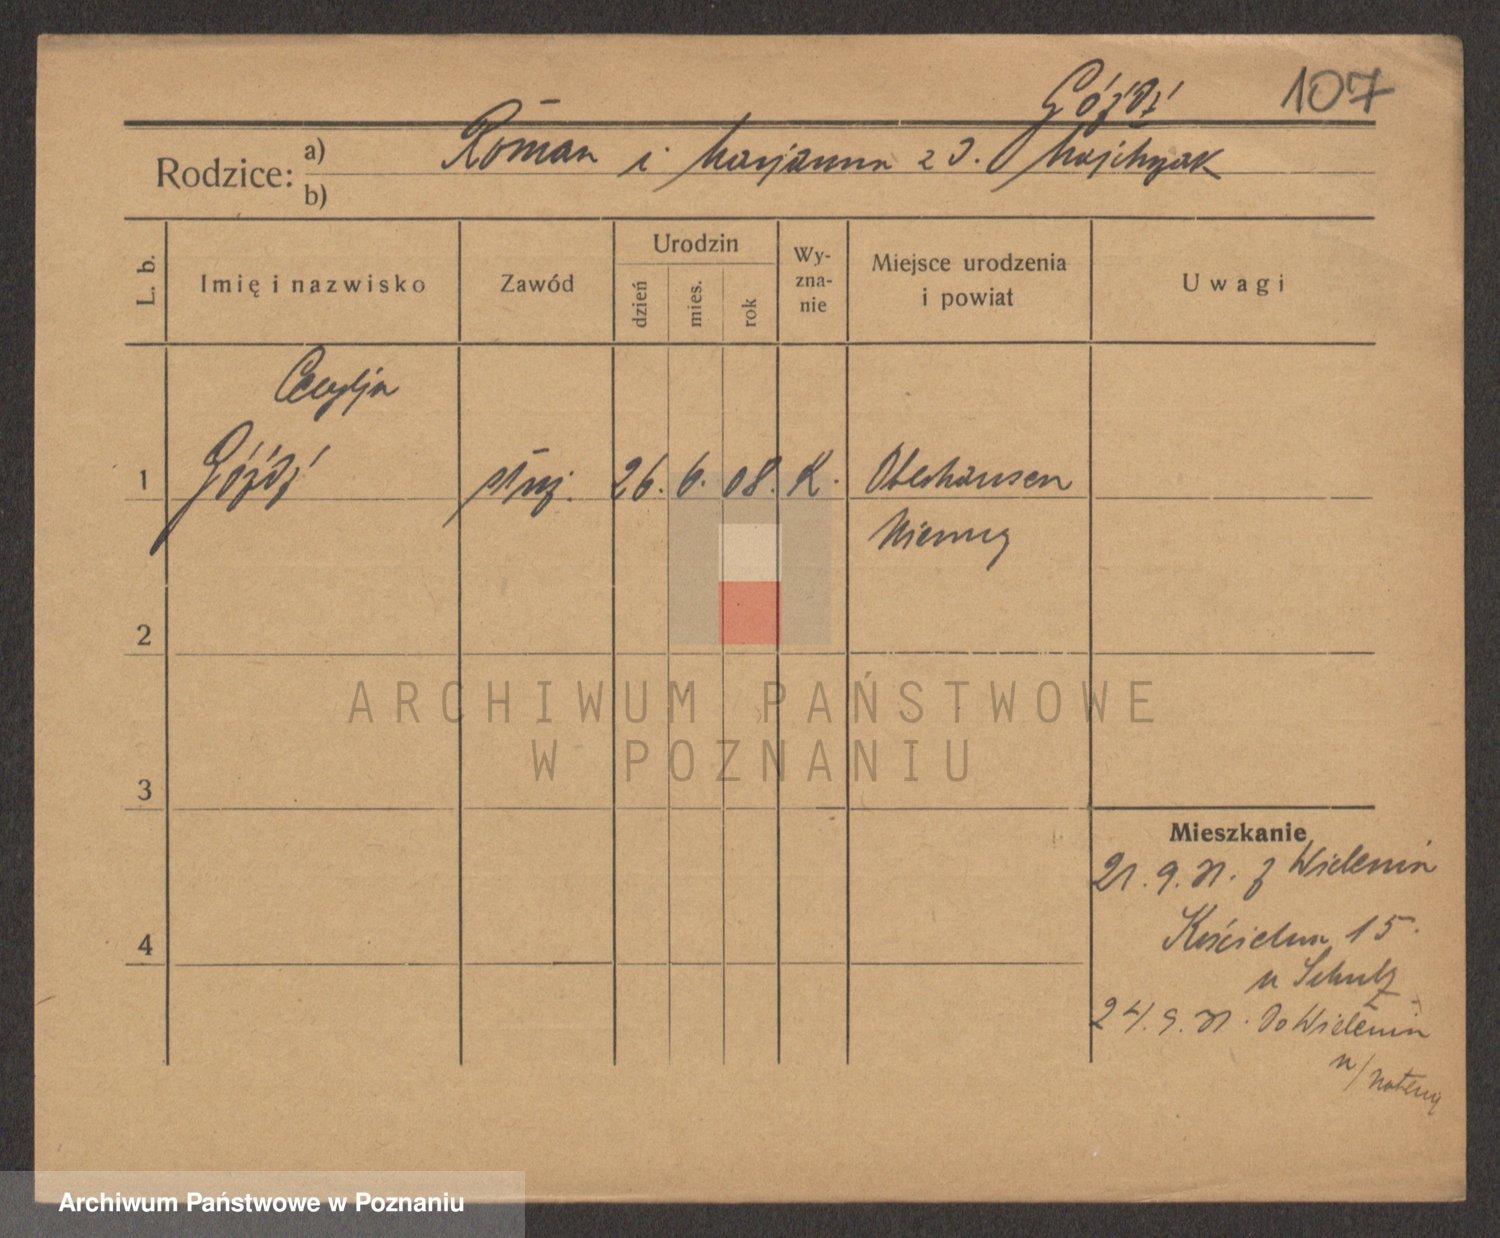 Góźdź 107
Rodzice: a) Roman i Marjanna z d. Majchrzak
b)
L. b.
Imię i nazwisko
Zawód
Urodzin
dzień
mies.
rok
Wy-
zna-
nie
Miejsce urodzenia
i powiat
Uwagi
Cecylja
1 Góźdź służ. 26. 6. 08. K. Oberhausen
Niemcy
2
ARCHIWUM PAŃSTWOWE
W POZNANIU
3
Mieszkanie
21. 9. 31. z Wielenia
4 Kościelna 15.
u Schulz
24. 9. 31. do Wielenia
n/Notecią
Archiwum Państwowe w Poznaniu